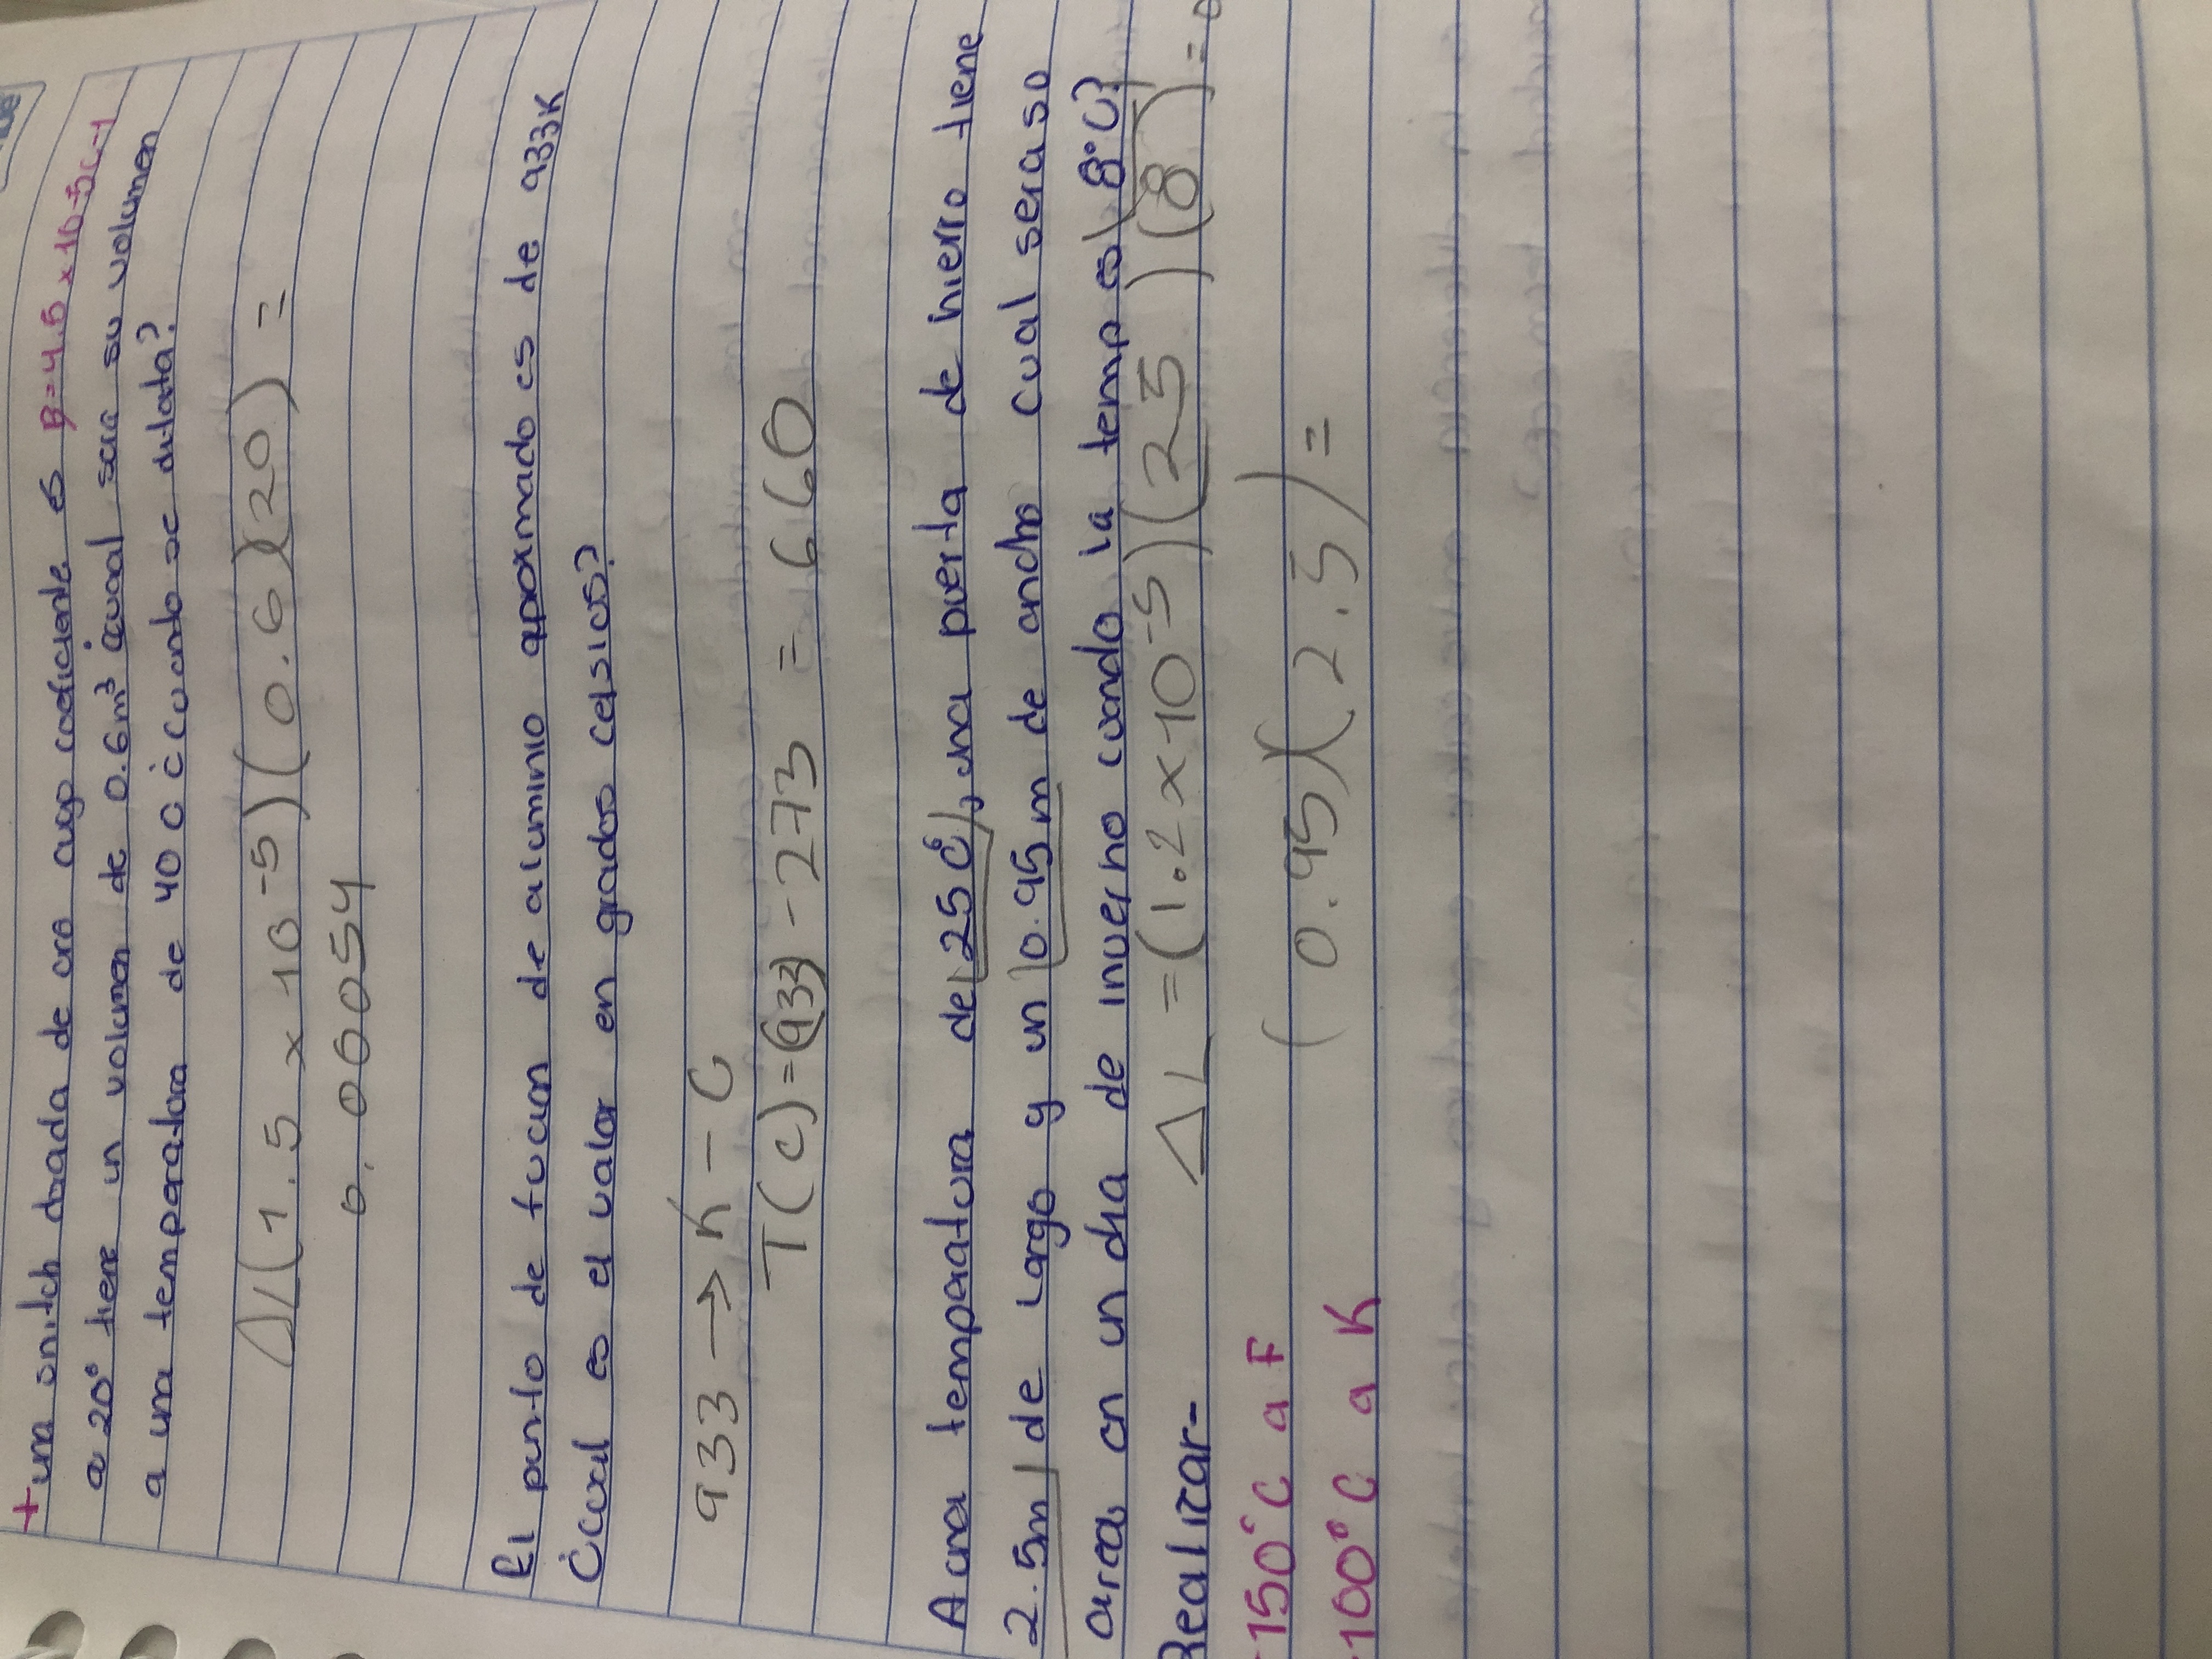 +una snitch dorada de oro cuyo coeficiente es B=4.5 x 10-5c-1
a 20° tiene un volumen de 0.6m³ ¿cual sera su volumen
a una temperatura de 40 C cuando se dilata?
ΔL(1.5 x 10⁻⁵)(0.6)(20) =
0.00054
El punto de fucion de aluminio aproximado es de 933K
¿cual es el valor en grados celsius?
933 → K - C
T(c)=(933)-273 = 660
A una temperatura de 25 C°, una puerta de hierro tiene
2.5m de largo y un 0.95m de ancho cual sera so
area en un dia de invierno cuando la temp es 8°C?
ΔL =(1.2 x 10⁻⁵)(25)(8)=
Realizar-
(0.95)(2.5)=
150°C a F
100°C a K